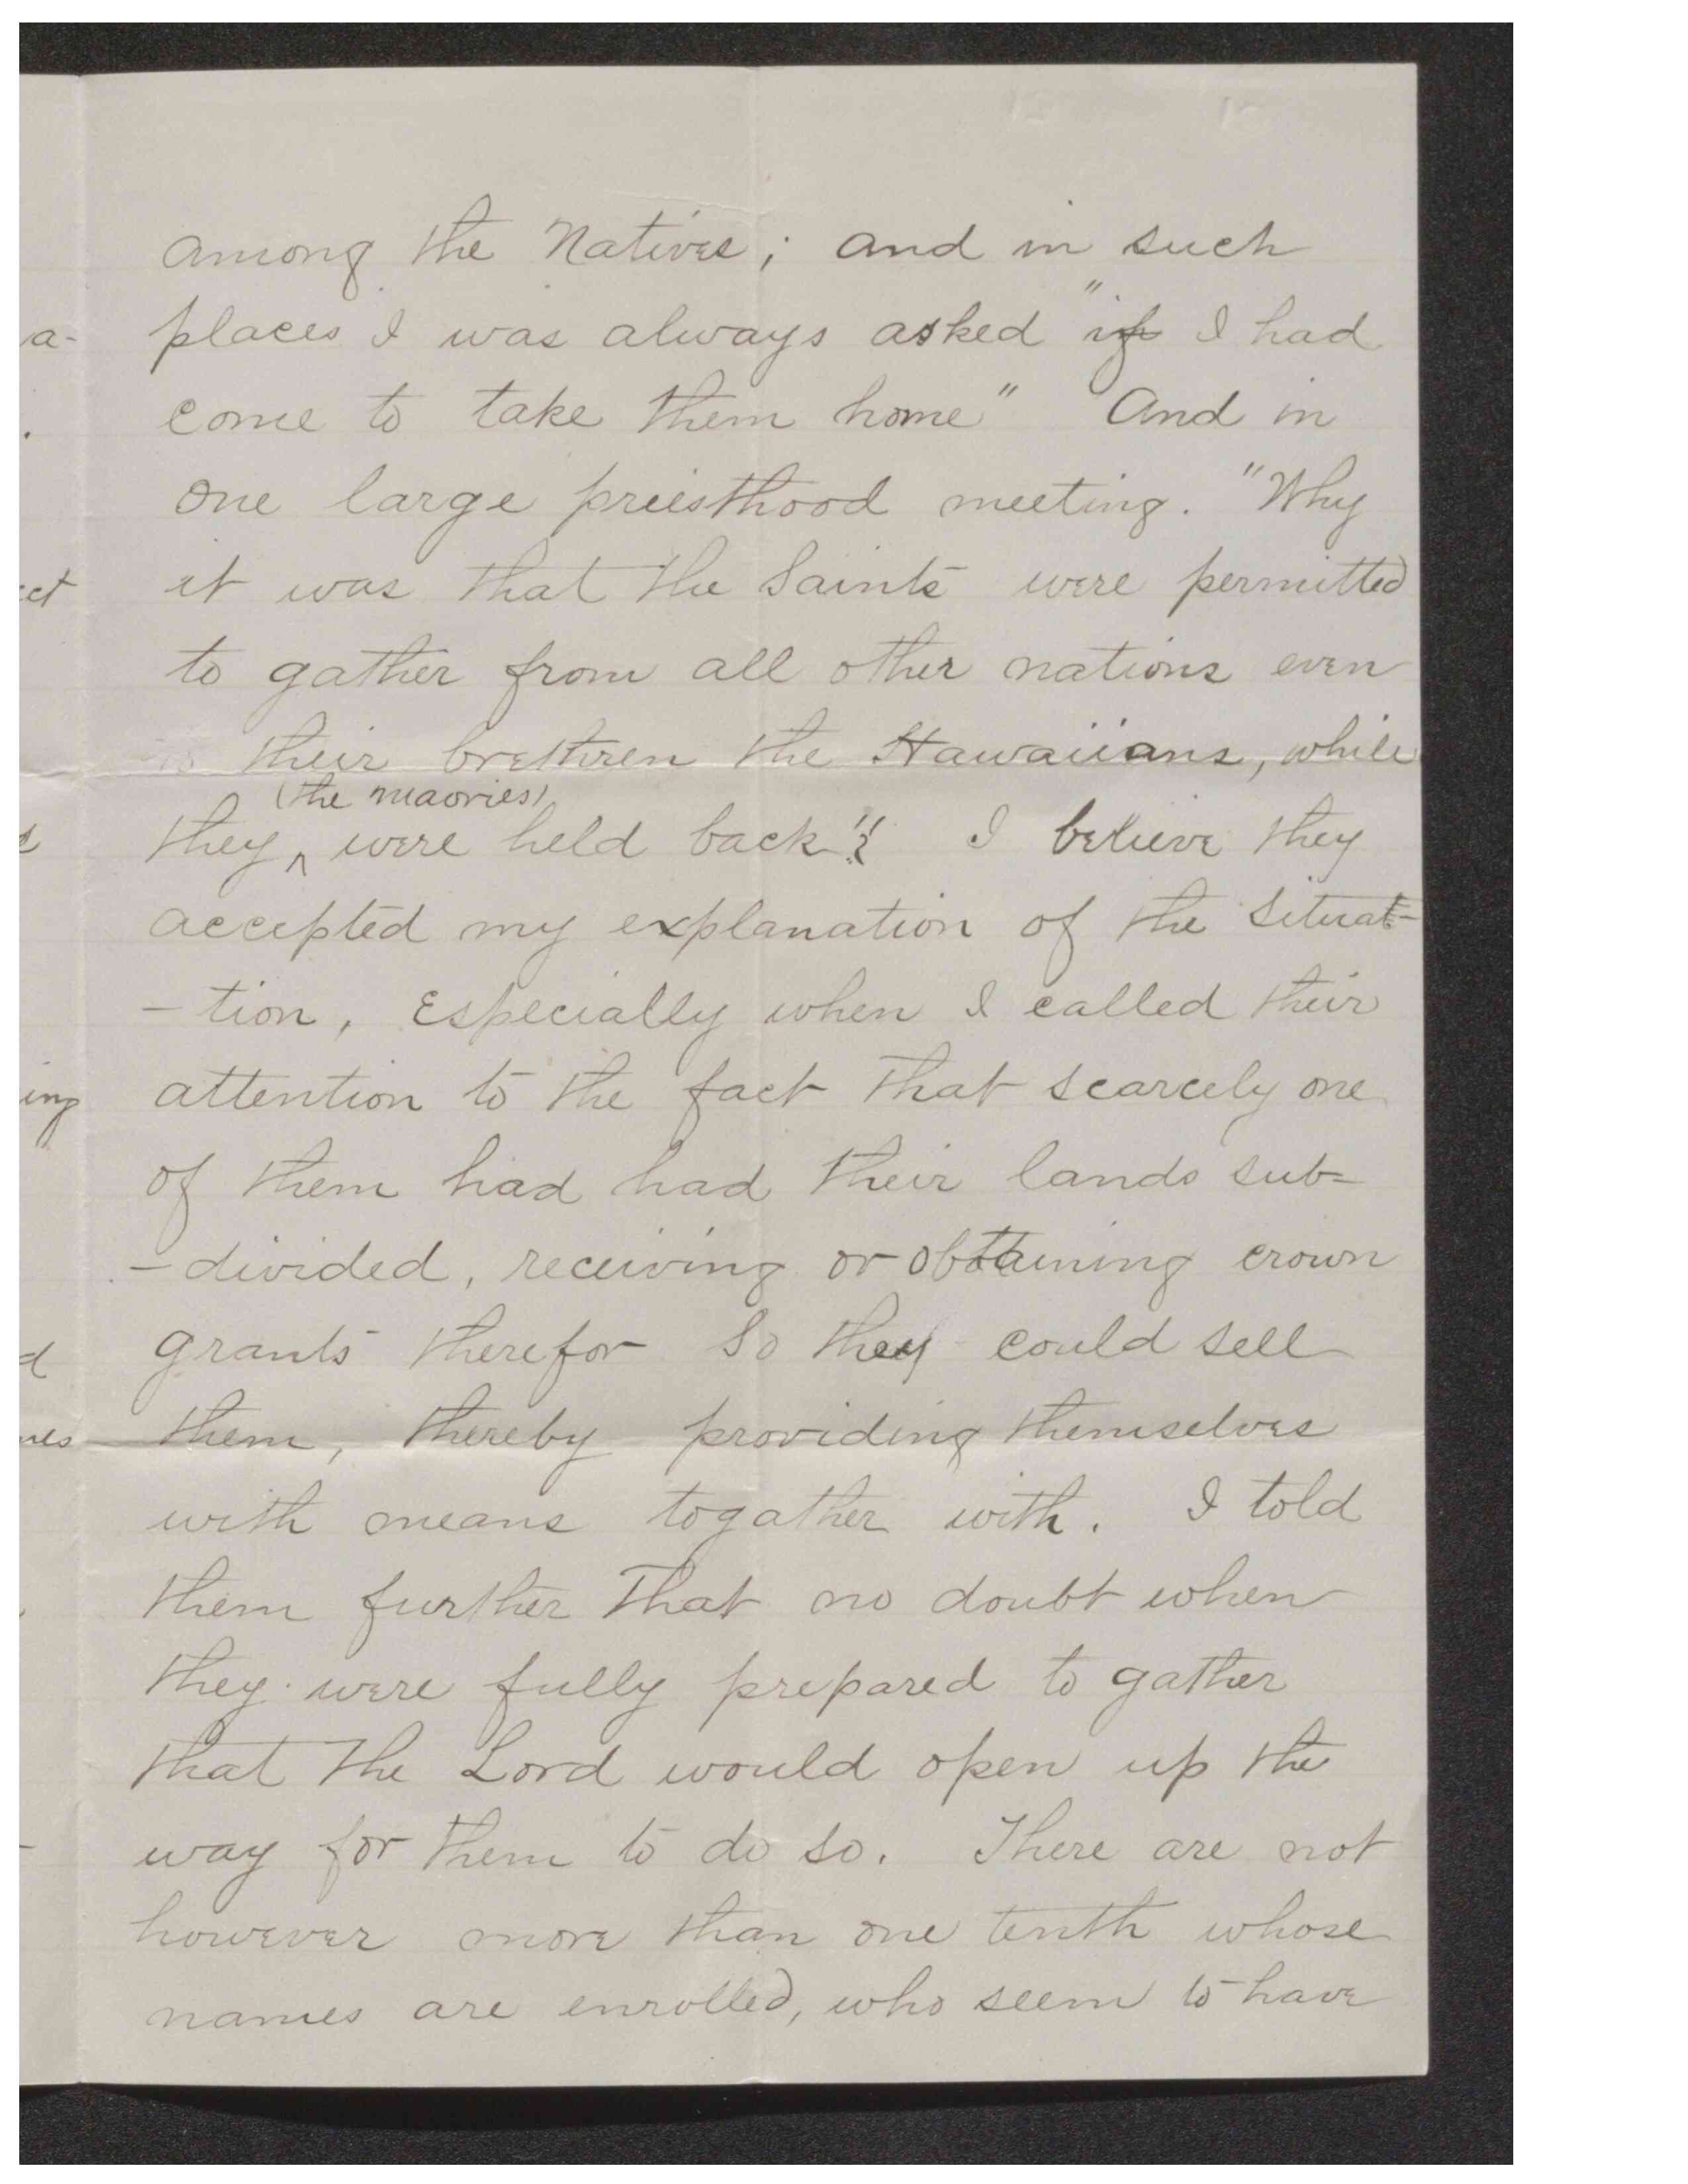 among the Natives; and in such
places I was always asked "if I had
come to take them home" And in
one large priesthood meeting. "Why
it was that the Saints were permitted
to gather from all other nations even
their brethren the Hawaiians, while
(the maories)
they ^ were held back"? I believe they
accepted my explanation of the situat-
-tion, Especially when I called their
attention to the fact that scarcely one
of them had had their lands sub=
-divided, receiving or obtaining crown
grants therefor So they could sell
them, thereby providing themselves
with means togather with. I told
them further that no doubt when
they were fully prepared to gather
that the Lord would open up the
way for them to do so. There are not
however more than one tenth whose
names are enrolled, who seem to have